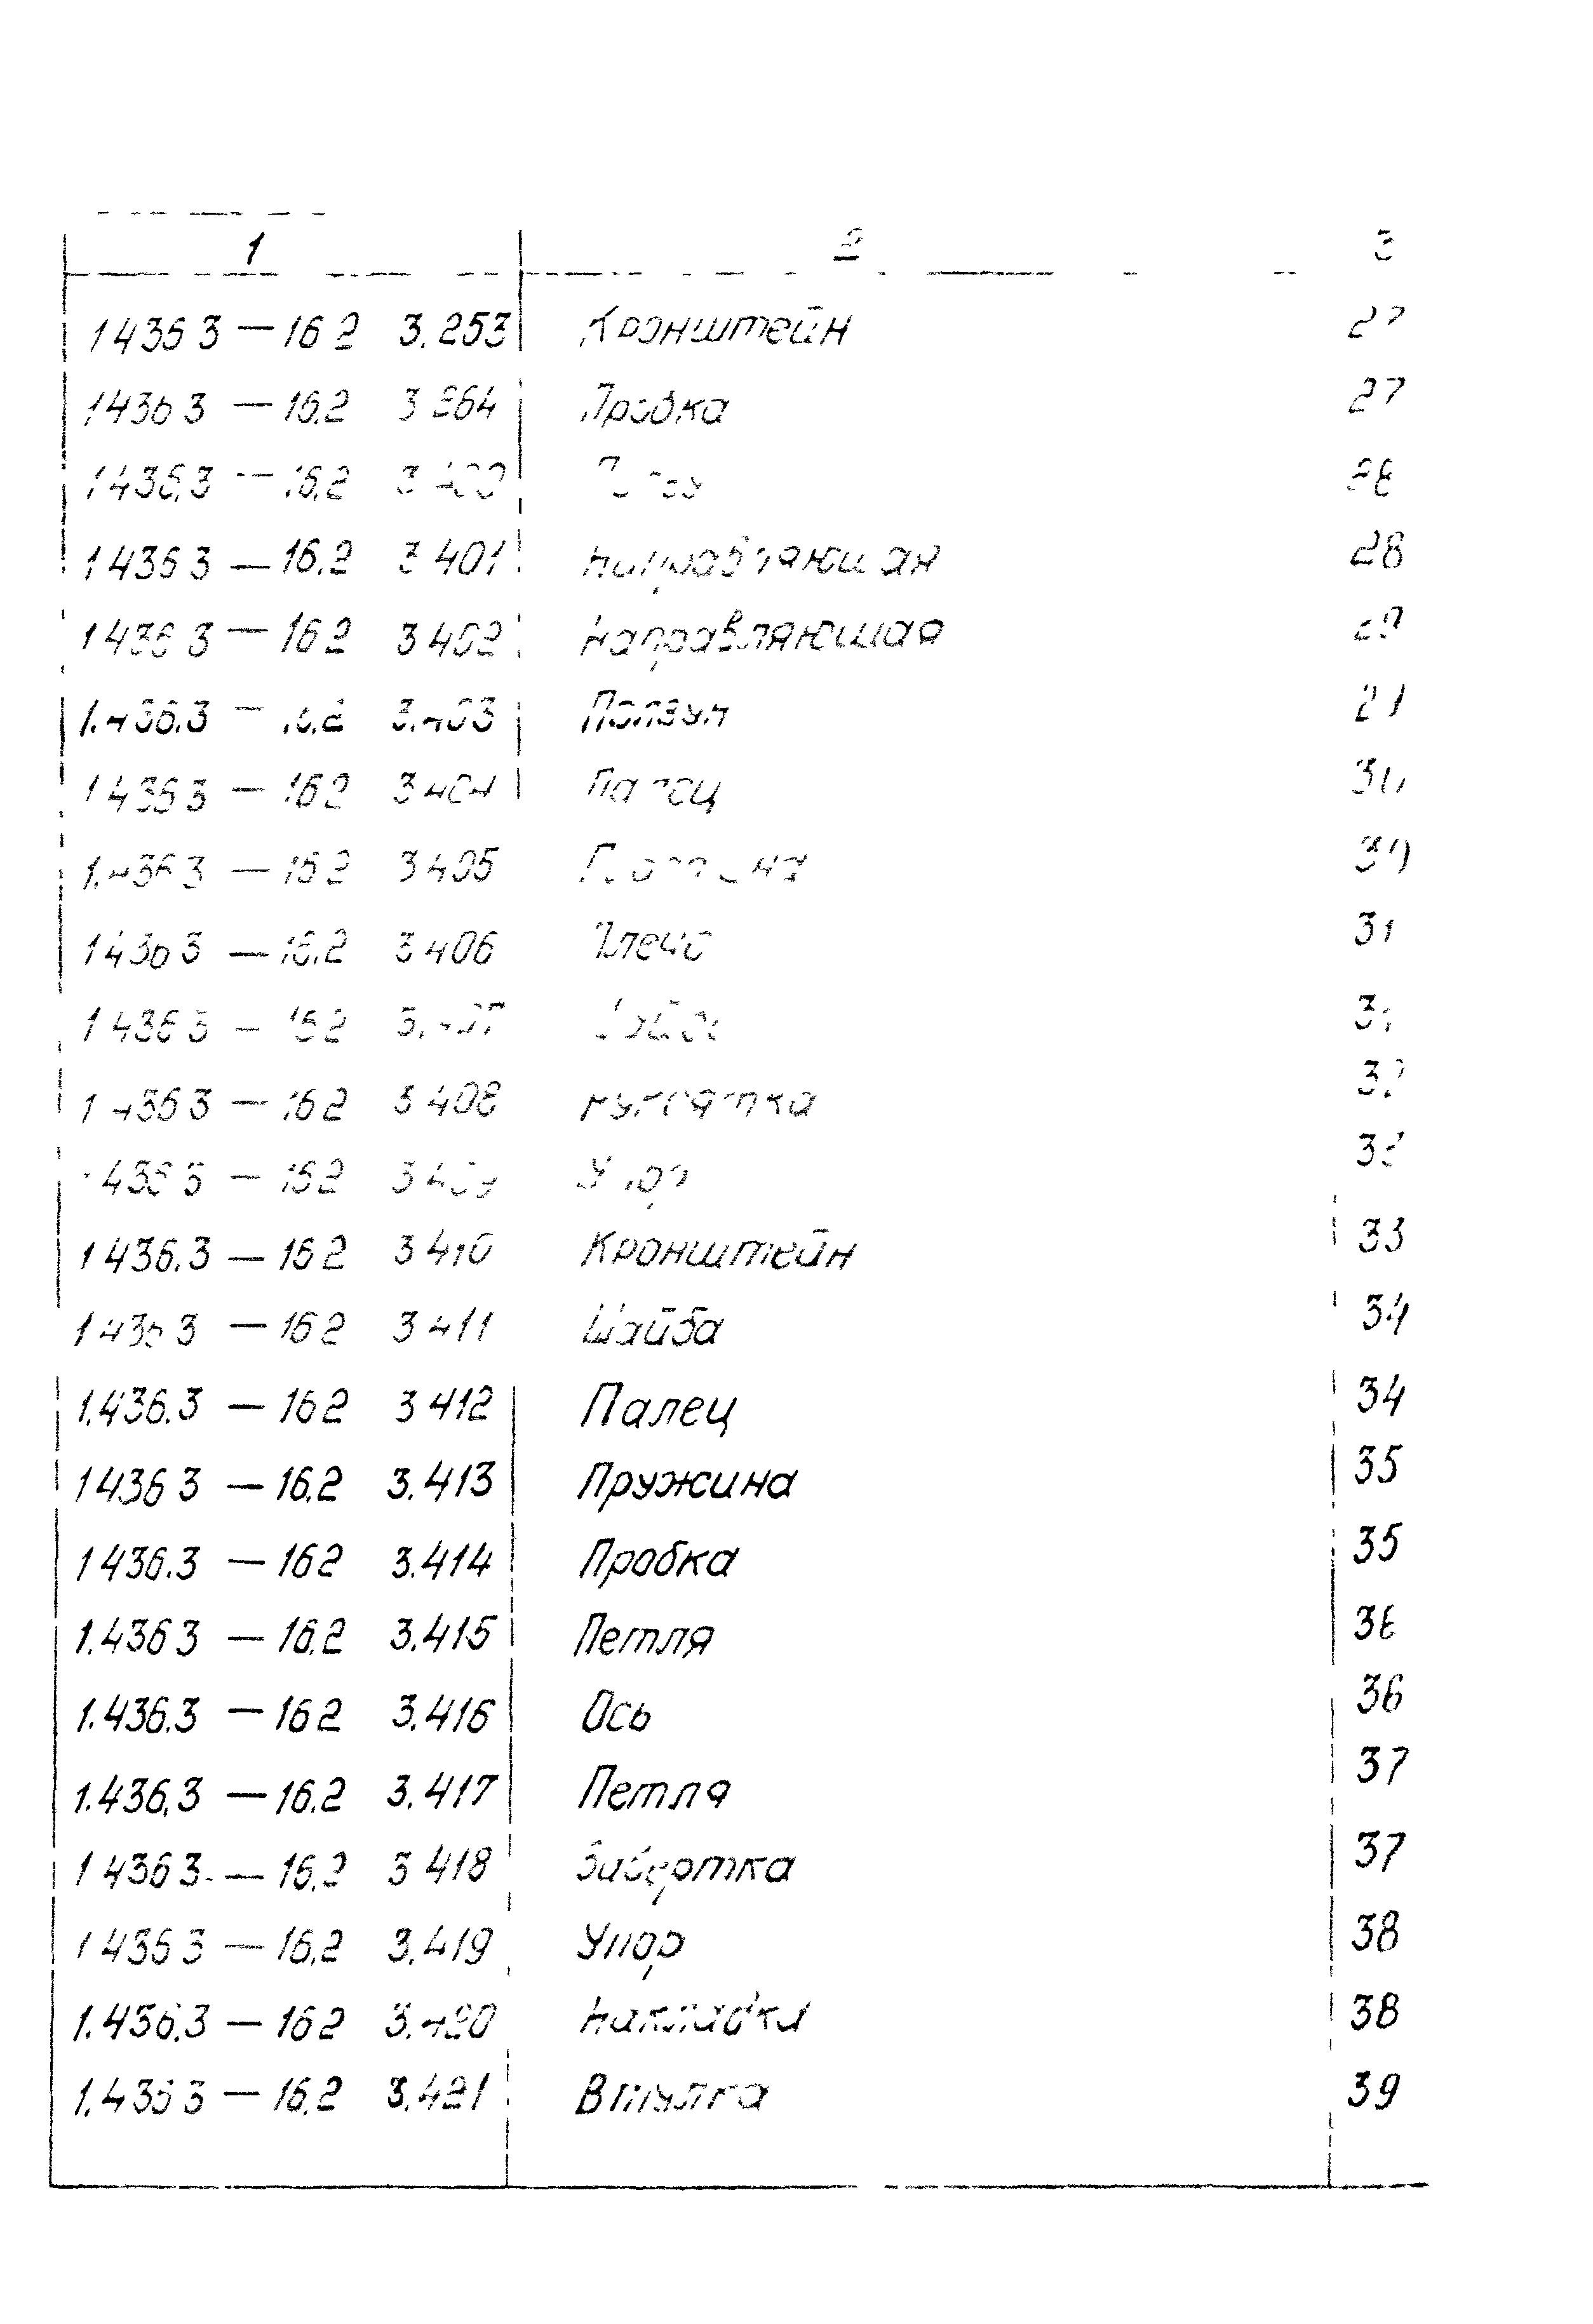 1 2 3
1 436 3 — 16 2 3.253 Кронштейн 27
1 436 3 — 16.2 3 264 Пробка 27
1.436.3 — 16.2 3 400 28
1 436 3 — 16.2 3 401 Направляющая 28
1 436 3 — 16 2 3 402 Направляющая 29
1.436.3 — 16.2 3.403 Ползун
1 436 3 — 16 2 3 404 Палец 30
1.436 3 — 16 2 3 405 30
1 436 3 — 16.2 3 406 Плечо 31
1 436 3 — 16 2 3.407 31
1 436 3 — 16 2 3 408 Рукоятка 32
1 436 3 — 16 2 3 409 Упор
1 436.3 — 16 2 3 410 Кронштейн 33
1 436 3 — 16 2 3 411 Шайба 34
1.436.3 — 16 2 3 412 Палец 34
1 436 3 — 16.2 3.413 Пружина 35
1 436.3 — 16 2 3.414 Пробка 35
1.436 3 — 16.2 3.415 Петля 36
1.436.3 — 16 2 3.416 Ось 36
1.436.3 — 16.2 3.417 Петля 37
1 436 3 — 16.2 3 418 Завертка 37
1 436 3 — 16.2 3.419 Упор 38
1.436.3 — 16 2 3.420 Накладка 38
1.436 3 — 16.2 3.421 Втулка 39